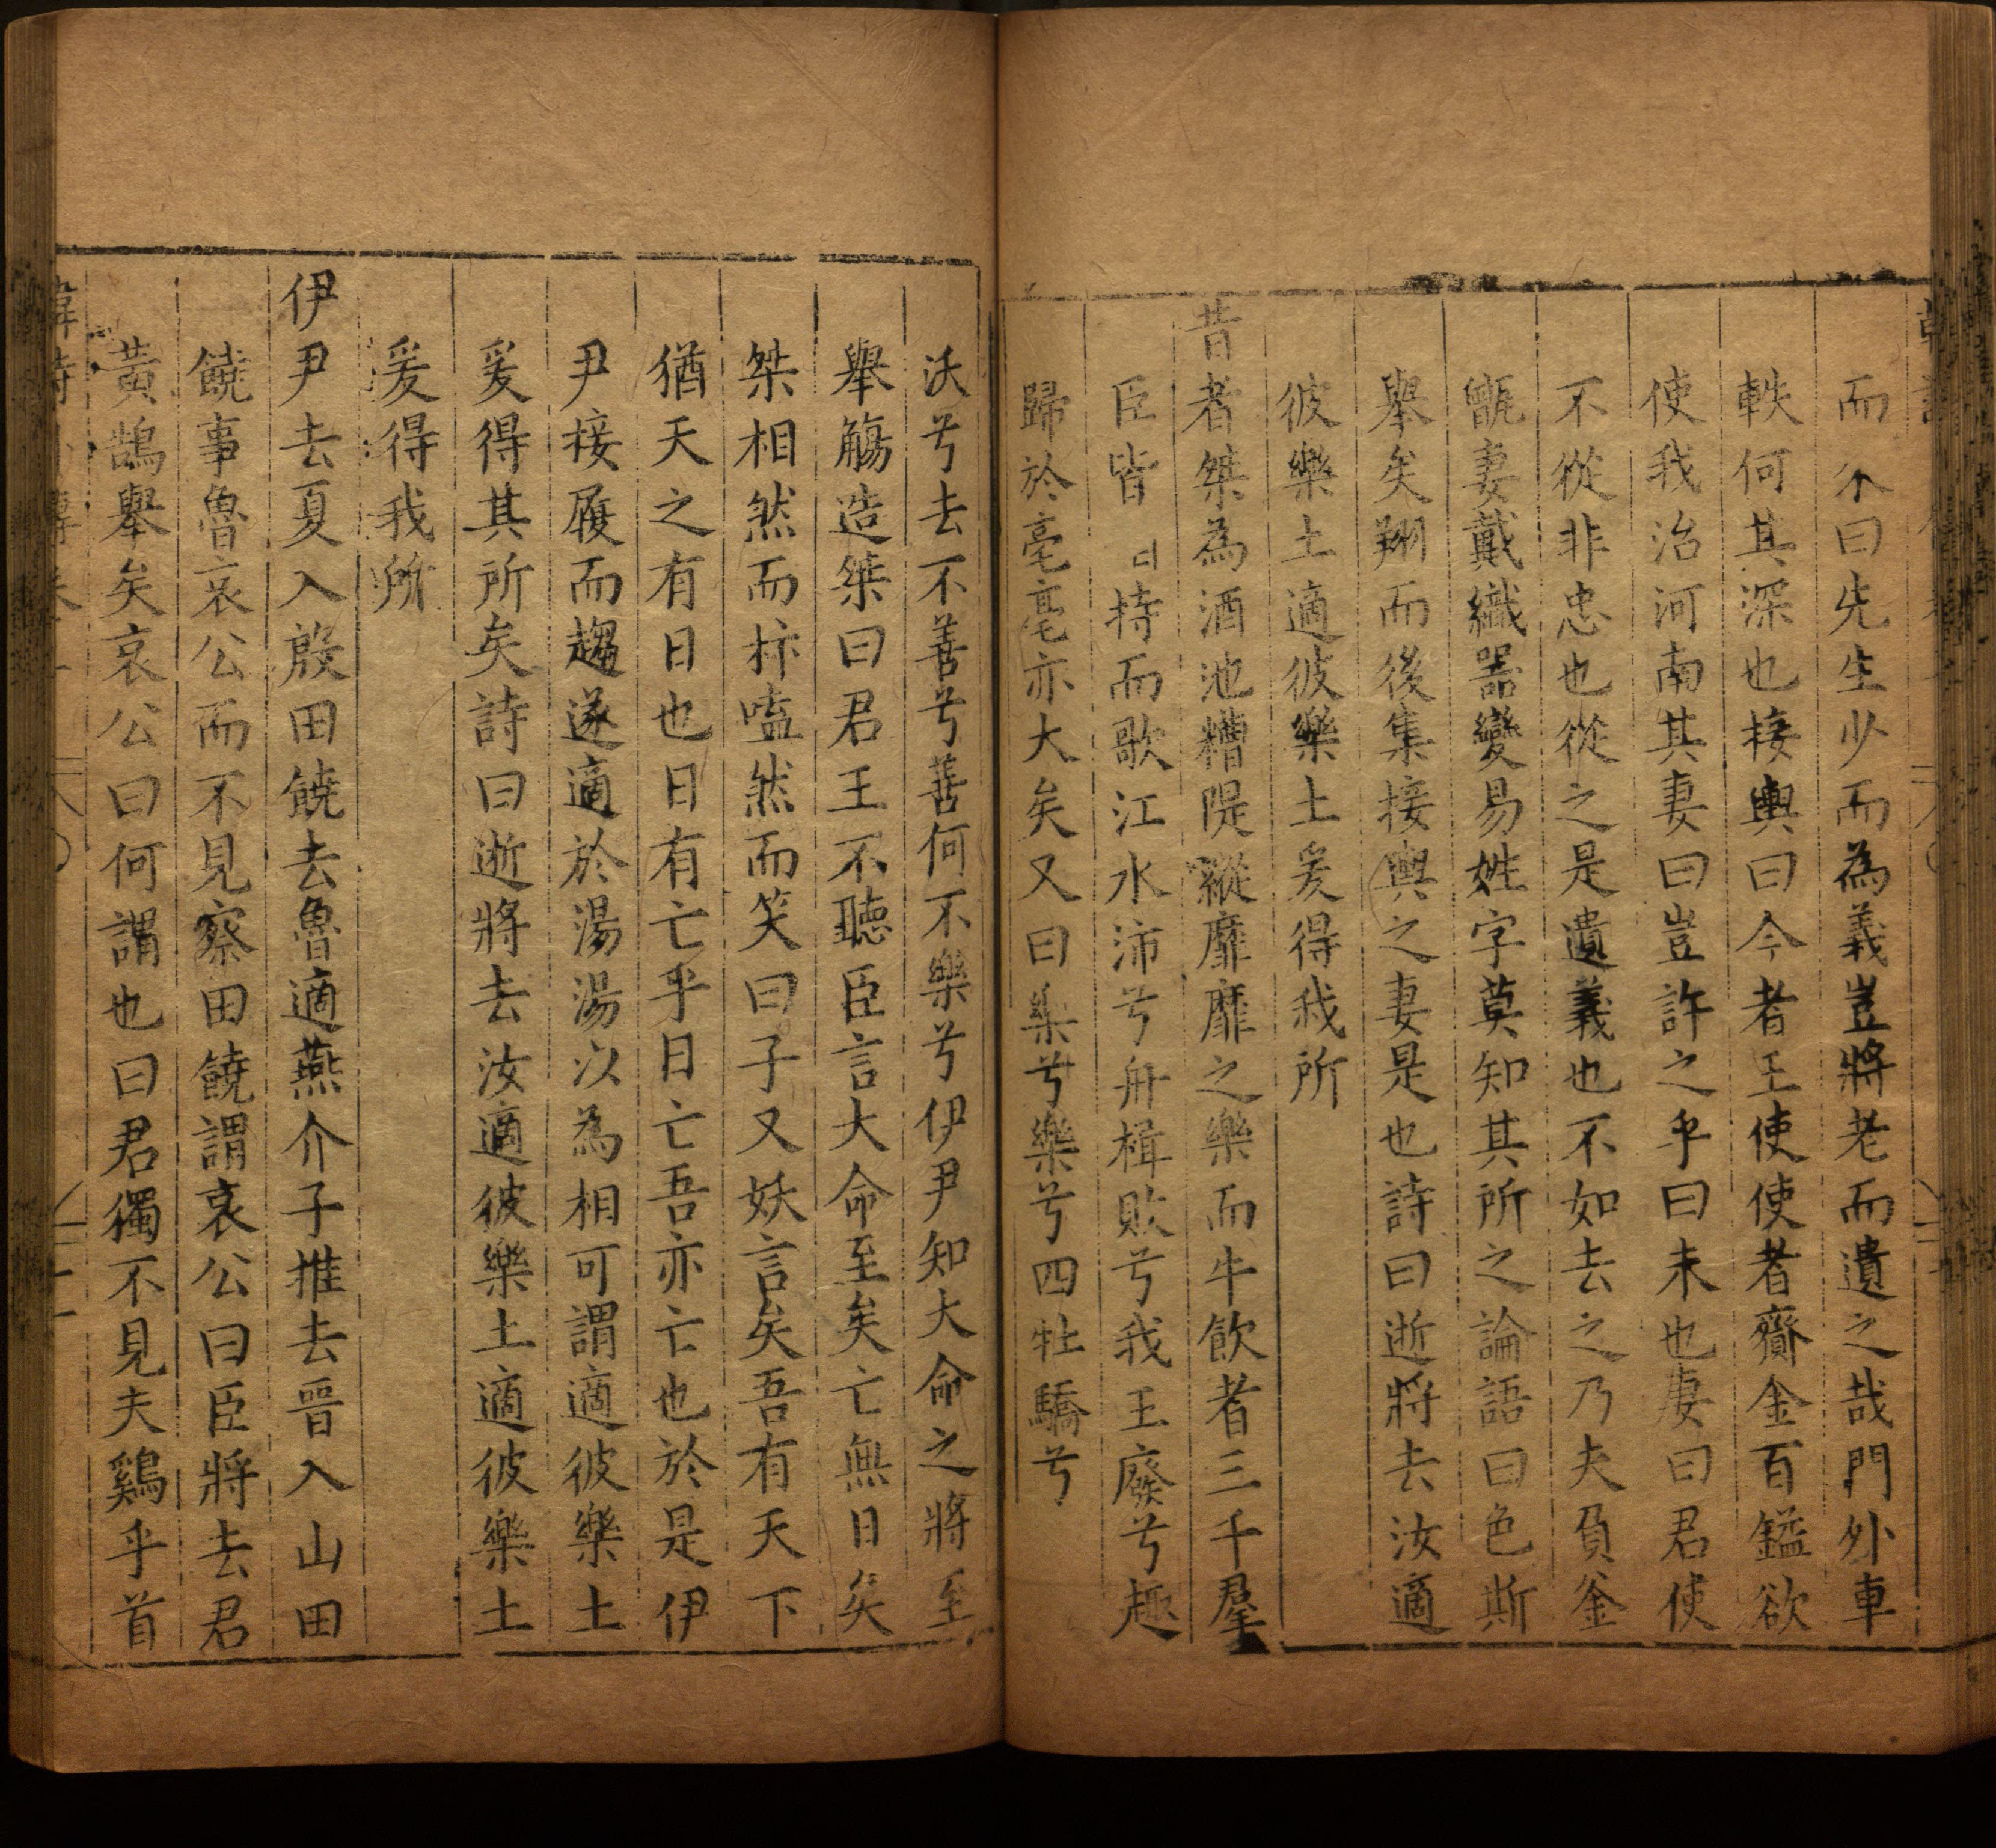 而不曰先生少而為義豈將老而遺之哉門外車
軼何其深也接輿曰今者王使使者齎金百鎰欲
使我治河南其妻曰豈許之乎曰未也妻曰君使
不從非忠也從之是遺義也不如去之乃夫負釜
甑妻戴織器變易姓字莫知其所之論語曰色斯
舉矣翔而後集接輿之妻是也詩曰逝將去汝適
彼樂土適彼樂土爰得我所
昔者桀為酒池糟隄縱靡靡之樂而牛飲者三千羣
臣皆持而歌江水沛兮舟楫敗兮我王廢兮趣
歸於亳亳亦大矣又曰樂兮樂兮四牡驕兮
沃兮去不善兮善何不樂兮伊尹知大命之將至
舉觴造桀曰君王不聽臣言大命至矣亡無日矣
桀相然而抃嗑然而笑曰子又妖言矣吾有天下
猶天之有日也日有亡乎日亡吾亦亡也於是伊
尹接履而趨遂適於湯湯以為相可謂適彼樂土
爰得其所矣詩曰逝將去汝適彼樂土適彼樂土
爰得我所
伊尹去夏入殷田饒去魯適燕介子推去晉入山田
饒事魯哀公而不見察田饒謂哀公曰臣將去君
黃鵠舉矣哀公曰何謂也曰君獨不見夫鷄乎首